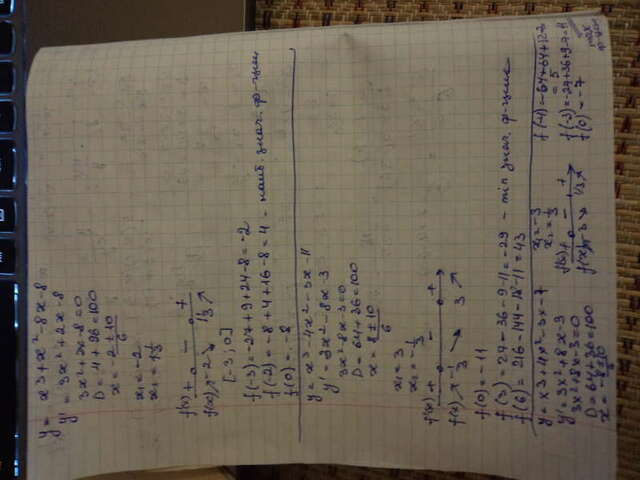 y = x3 + x² - 8x - 8
y' = 3x² + 2x - 8
3x² + 2x - 8 = 0
D = 4 + 96 = 100
x = -2 ± 10 / 6
x₁ = -2
x₂ = 1 1/3
f'(x) + o - o +
f(x) ↗ -2 ↘ 1 1/3 ↗
[-3; 0]
f(-3) = -27 + 9 + 24 - 8 = -2
f(-2) = -8 + 4 + 16 - 8 = 4 - наиб. знач. ф-ции
f(0) = -8
y = x³ - 4x² - 3x - 11
y' = 3x² - 8x - 3
3x² - 8x - 3 = 0
D = 64 + 36 = 100
x = 8 ± 10 / 6
x₁ = 3
x₂ = -1/3
f'(x) + o - o +
f(x) ↗ -1/3 ↘ 3 ↗
f(0) = -11
f(3) = 27 - 36 - 9 - 11 = -29 - min знач. ф-ции
f(6) = 216 - 144 - 18 - 11 = 43
y = x3 + 4x² - 3x - 7
y' = 3x² + 8x - 3
3x² + 8x - 3 = 0
D = 64 + 36 = 100
x = -8 ± 10 / 6
x₁ = -3
x₂ = 1/3
f'(x) + o - o +
f(x) ↗ -3 ↘ 1/3 ↗
f(-4) = -64 + 64 + 12 - 7
= 5
f(-3) = -27 + 36 + 9 - 7 = 11
max
ф-ции
f(0) = -7